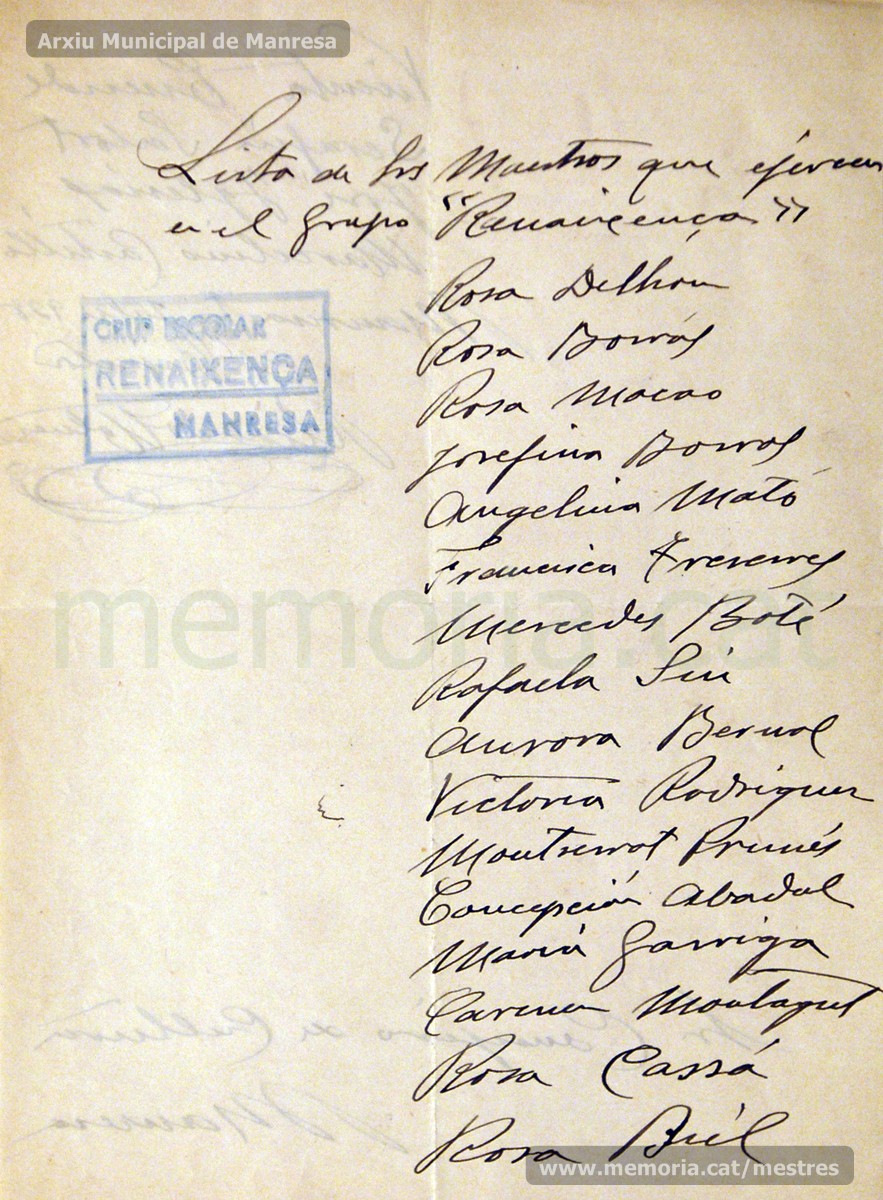 Arxiu Municipal de Manresa
Lista de los Maestros que ejercen
en el Grupo "Renaixença"
GRUP ESCOLAR
RENAIXENÇA
MANRESA
Rosa Delhom
Rosa Borrás
Rosa Macao
Josefina Borras
Angelina Mató
Francisca Freserres
Mercedes Boté
Rafaela Sin
Aurora Bernal
Victoria Rodriguez
Montserrat Prunés
Concepción Abadal
María Garriga
Carmen Montagut
Rosa Cassá
Rosa Biél
memoria.cat
www.memoria.cat/mestres